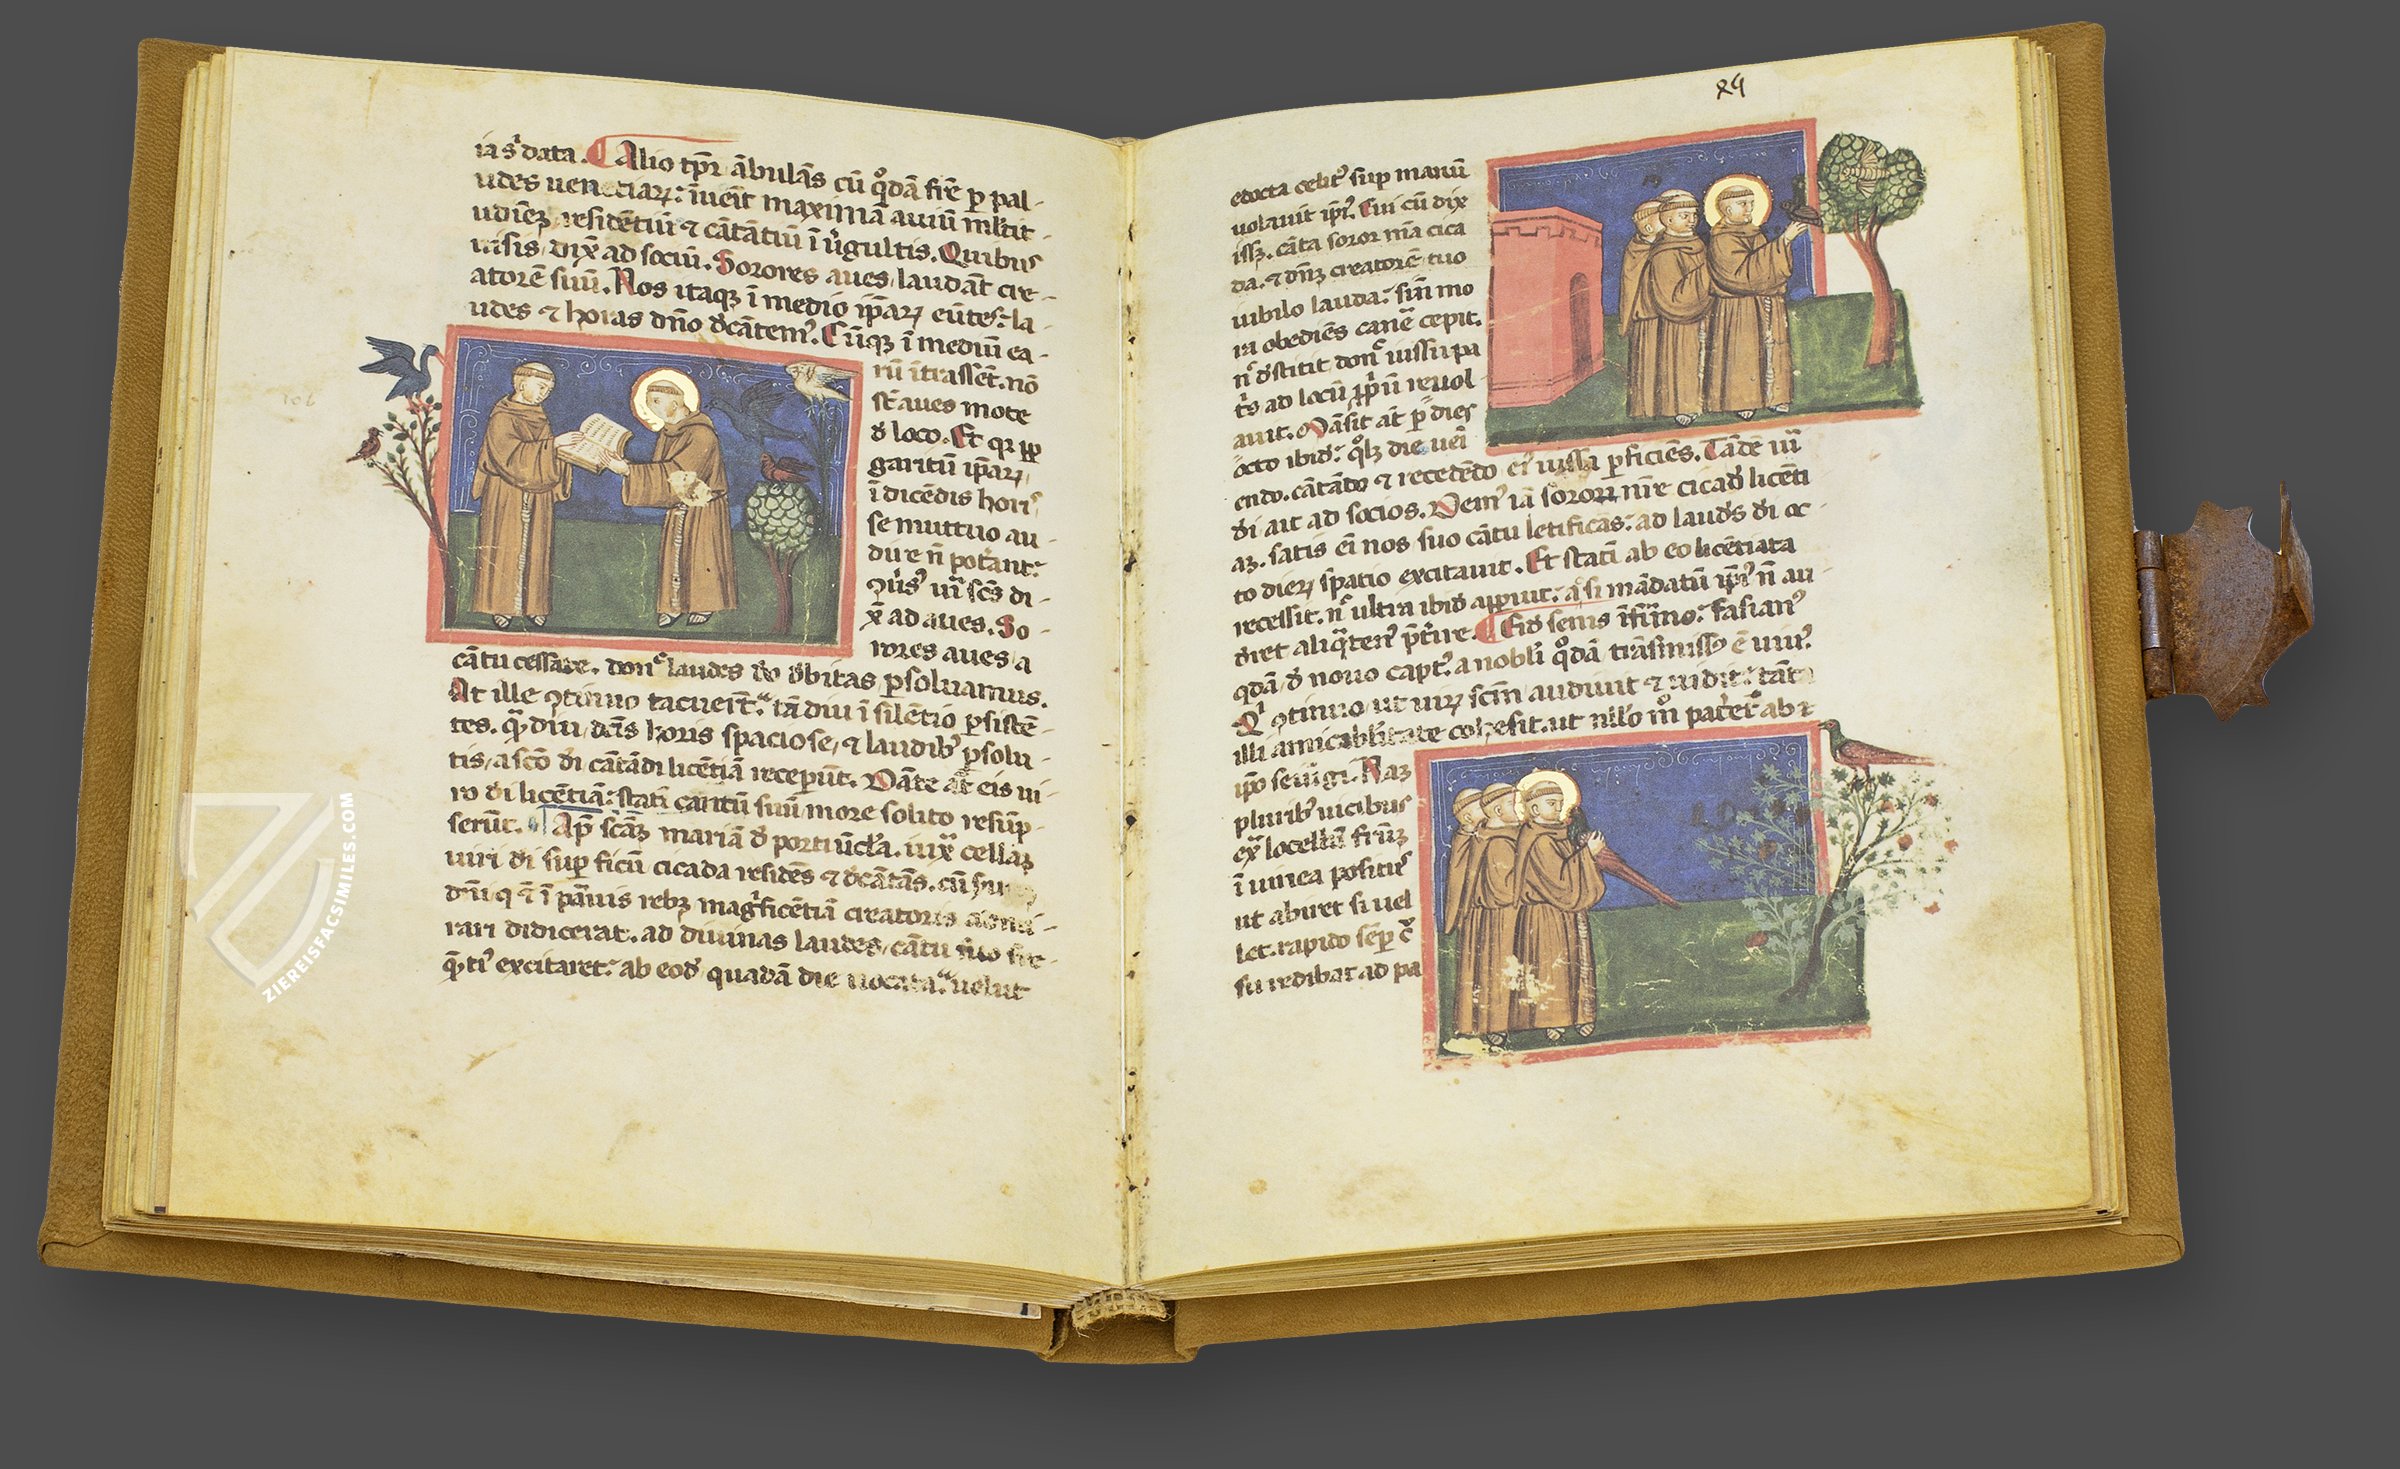 ias᷒ data. Alio tp̄r ābulās cū qͦdā fr̄e p pal-
udes uenetiaꝝ: īuēit maximā auiū ml̄tit-
udinē, residētiū ⁊ cātātiū ī uͥgultis. Quibus
uisis, dix̄ ad sociū. Sorores aues laudāt cre-
atorē suū. Nos itaqꝫ ī medio ip̄aꝝ eūtes: la-
udes ⁊ horas dn̄o d̓cātem᷒. Cūqꝫ ī mediū ea-
rū ītrassēt. nō
st̄ aues mote
d̓ loco. Et qꝛ ꝓp̄
garitū ip̄aꝝ,
ī dicēdis horis
se muttuo au-
dire n̄ pot̓ant:
ꝯūs᷒ uͥ sc̄s di-
x̄ ad aues. So-
rores aues a
cātu cessate. don᷒ laudes do d̓bitas ꝑsoluamus.
At ille ꝯtinuo tacuer̄t. tādiu ī silētio ꝑsistē-
tes. qͣdiu dc̄is horis spaciose, ⁊ laudib᷒ ꝑsolu-
tis, a sc̄o di cātādi licētiā receper̄t. Dāte at̄ eis ui-
ro di licētiā: statī cantū suū more solito resūp-
serūt. Ap̄ sc̄āꝫ mariā d̓ portiūcl̄a. iuxͣ cellaꝫ
uiri di sup ficū cicada residēs ⁊ d̓cātās. cū
dn̄i q ⁊ ī paruis rebꝫ magͥficētiā creatoris admi-
rari didicerat. ad diuinas laudes, cātu
qͣ̄ti᷒ excitaret: ab eod̓ quadā die uocata: uelut
24
edocta celit᷒ sup manū
uolauit ip̄i᷒. Cui cū dix
issꝫ. cāta soror mͣ cica
da. ⁊ dn̄ꝫ creatorē tuo
iubilo lauda: sin̄ mo
ra obediēs canē cepit.
n᷒ d̓stitit don᷒ iussu pa
tͥs ad locū ꝓpͥū reuol
auit. Māsit at̄ ꝑ dies
octo ibid̓: qͦlꝫ die uei᷒
endo. cātādo ⁊ recedēdo ei᷒ iussa ꝑficiēs. Tādē uͥ
di ait ad socios. Dem᷒ iā sorori nr̄e cicad̓ licēti
aꝫ. satis ei nos suo cātu letificās: ad laud̓s di oc-
to dieꝝ spatio excitauit. Et statī ab eo licētiata
recessit. n᷒ ultra ibid̓ apparuit: qͣsi mādatū ip̄i᷒ n̄ au-
d̓ret aliqͣten᷒ p̄tͥre. Eid̓ senis īfirmo: fasian᷒
qͥdā d̓ nouo capt᷒. a nobli qͦdā trāsmissus ē uiu᷒.
Qͥ ꝯtinuo, ut uiꝝ scm̄ audiuit ⁊ uidit: tāta
illi amicabilitate cohesit. ut nllo mͦ pater̄t ab
ip̄o seiūgi. Naꝫ
plurib᷒ uicibus
ex̄ locellū fr̄ūꝫ
ī uinea positus
ut abiret si uel
let. rapido sēꝑ c᷒
su redibat ad pa
ZIEREISFACSIMILES.COM